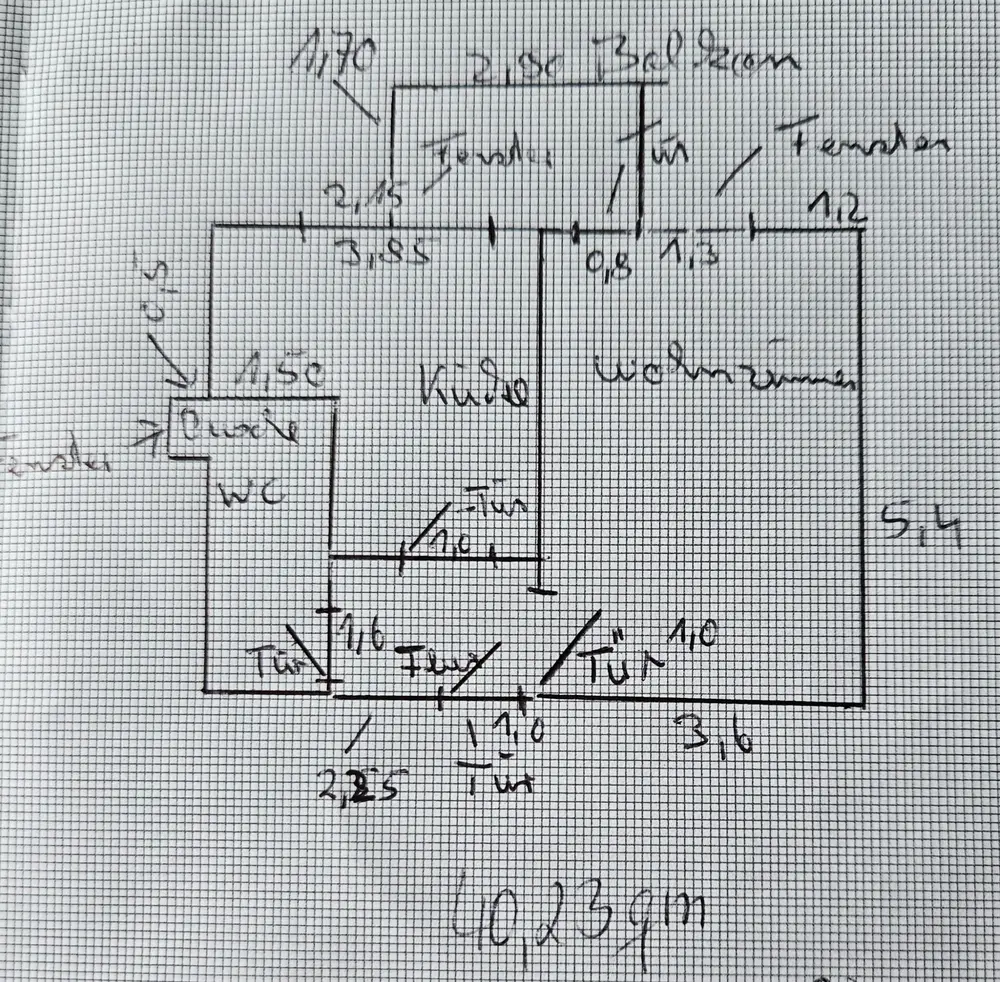 1,70
2,90 Balkon
Fenster
Tür
Fenster
2,15
1,2
3,85
0,8
1,3
0,5
1,50
Küche
Wohnzimmer
Dusche
Fenster
WC
Tür
1,0
5,4
1,6
Tür
Flur
Tür
1,0
1,0
3,6
Tür
40,23 qm